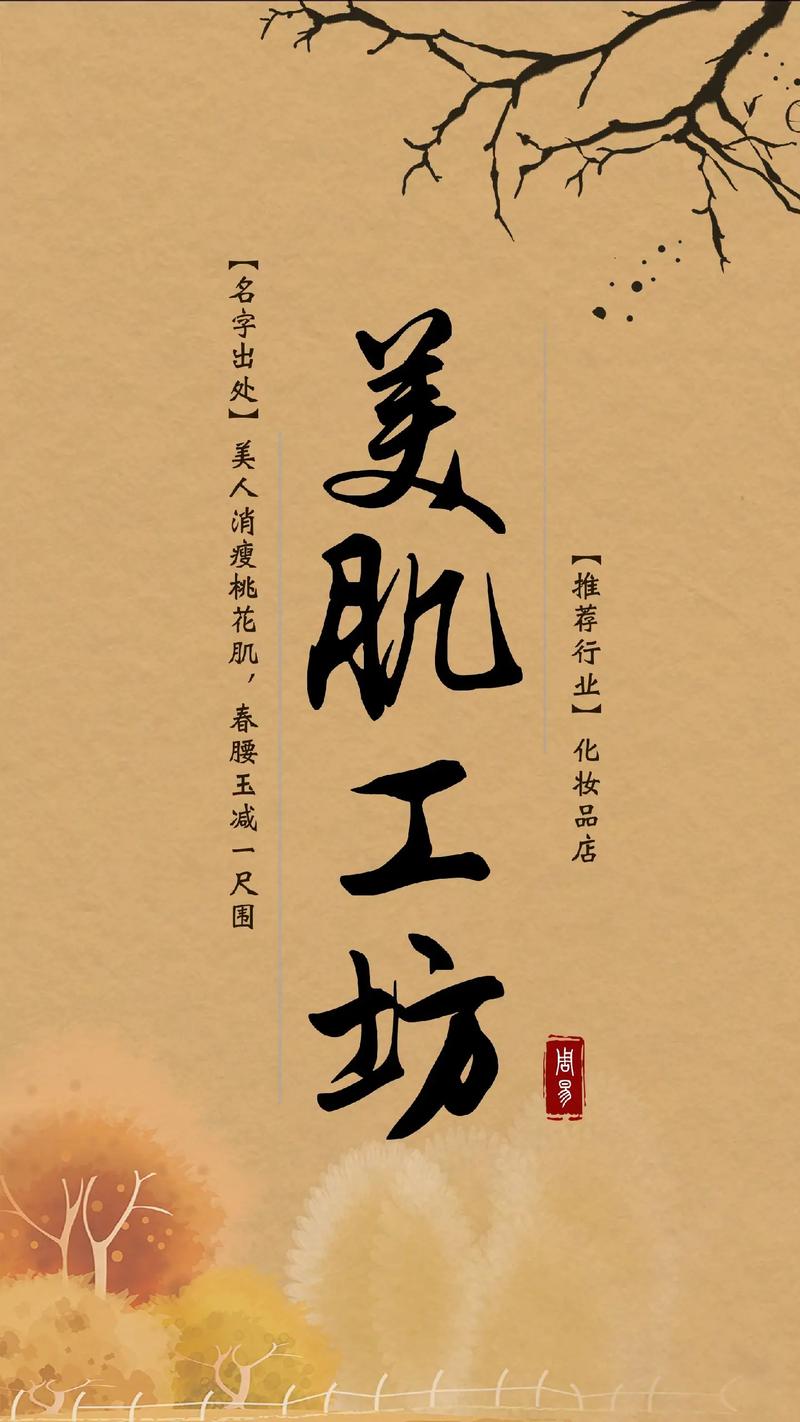 美肌工坊
【名字出处】美人消瘦桃花肌，春腰玉减一尺围
【推荐行业】化妆品店
周易